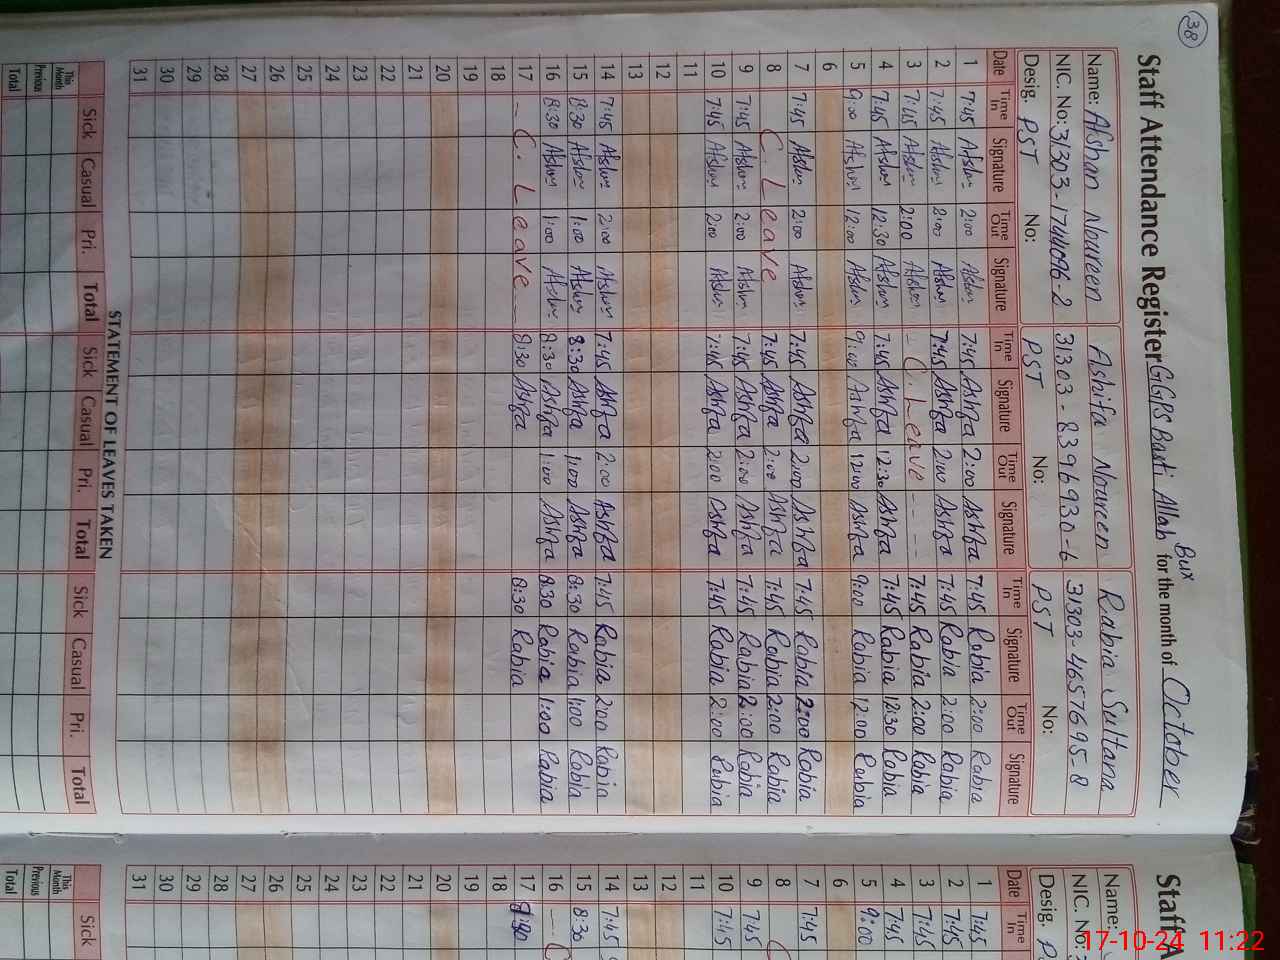 38
Staff Attendance Register GGPS Basti Allah Bux for the month of October
Name: Afshan Noureen Ashifa Noureen Rabia Sultana
NIC. No: 31303-8396930-6 31303-4657695-8
Desig. PST No: PST No: PST No:
Date Time In Signature Time Out Signature Time In Signature Time Out Signature Time In Signature Time Out Signature
1 7:45 Afshan 2:00 Afshan 7:45 Ashifa 2:00 Ashifa 7:45 Rabia 2:00 Rabia
2 7:45 Afshan 2:00 Afshan 7:45 Ashifa 2:00 Ashifa 7:45 Rabia 2:00 Rabia
3 7:45 Afshan 2:00 Afshan - C. Leave - - - 7:45 Rabia 2:00 Rabia
4 7:45 Afshan 12:30 Afshan 7:45 Ashifa 12:30 Ashifa 7:45 Rabia 12:30 Rabia
5 9:00 Afshan 12:00 Afshan 9:00 Ashifa 12:00 Ashifa 9:00 Rabia 12:00 Rabia
6
7 7:45 Afshan 2:00 Afshan 7:45 Ashifa 2:00 Ashifa 7:45 Rabia 2:00 Rabia
8 C. Leave 7:45 Ashifa 2:00 Ashifa 7:45 Rabia 2:00 Rabia
9 7:45 Afshan 2:00 Afshan 7:45 Ashifa 2:00 Ashifa 7:45 Rabia 2:00 Rabia
10 7:45 Afshan 2:00 Afshan 7:45 Ashifa 2:00 Ashifa 7:45 Rabia 2:00 Rabia
11
12
13
14 7:45 Afshan 2:00 Afshan 7:45 Ashifa 2:00 Ashifa 7:45 Rabia 2:00 Rabia
15 8:30 Afshan 1:00 Afshan 8:30 Ashifa 1:00 Ashifa 8:30 Rabia 1:00 Rabia
16 8:30 Afshan 1:00 Afshan 8:30 Ashifa 1:00 Ashifa 8:30 Rabia 1:00 Rabia
17 - C. Leave - 8:30 Ashifa 8:30 Rabia
18
19
20
21
22
23
24
25
26
27
28
29
30
31
STATEMENT OF LEAVES TAKEN
Sick Casual Pri. Total Sick Casual Pri. Total Sick Casual Pri. Total
This Month
Previous
Total
Staff A
Name:
NIC. No:
Desig. P
Date Time In
1 7:45
2 7:45
3 7:45
4 7:45
5 9:00
6
7 7:45
8 C
9 7:45
10 7:45
11
12
13
14 7:45
15 8:30
16 - - C
17 8:30
18
19
20
21
22
23
24
25
26
27
28
29
30
31
Sick
This Month
Previous
Total
17-10-24 11:22